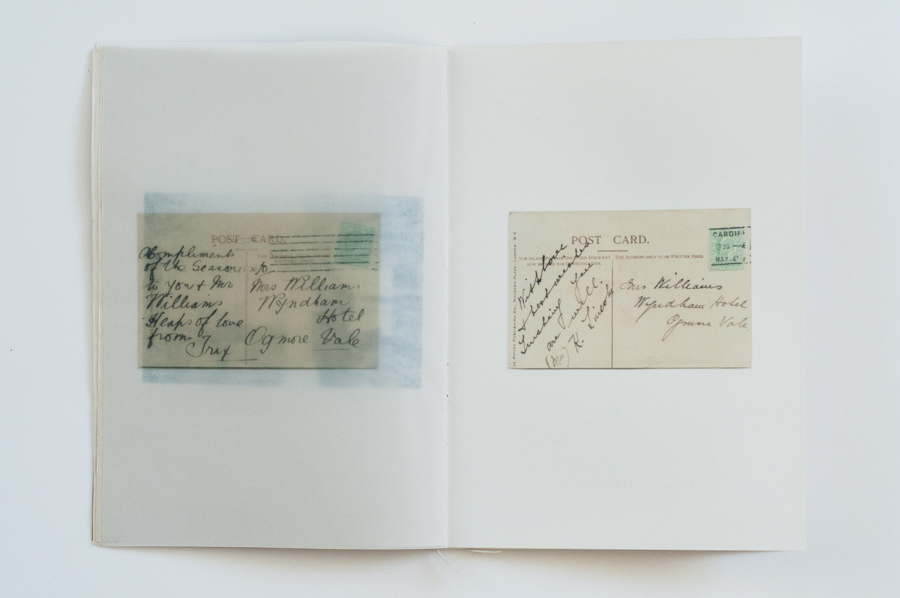 POST CARD.
Compliments
of the Season
to you & Mr
Williams
Heaps of love
from
Trix
Mrs Williams
Wyndham
Hotel
Ogmore Vale
POST CARD.
CARDIFF
MAY
With love
& best wishes
Trusting you
are well.
K.
Mrs Williams
Wyndham Hotel
Ogmore Vale